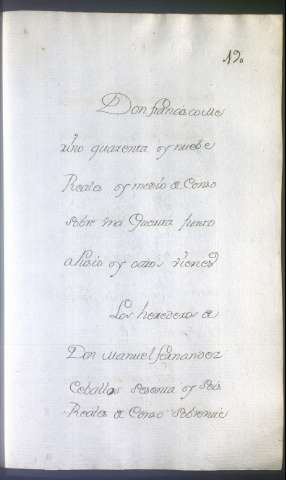 19
Don francisco Me
rino quarenta y nuebe
Reales y medio de Censo
sobre una Guerta junto
a Rosio y otros vienes
Los herederos de
Don Manuel fernandez
Ceballos sesenta y seis
Reales de Censo sobre una